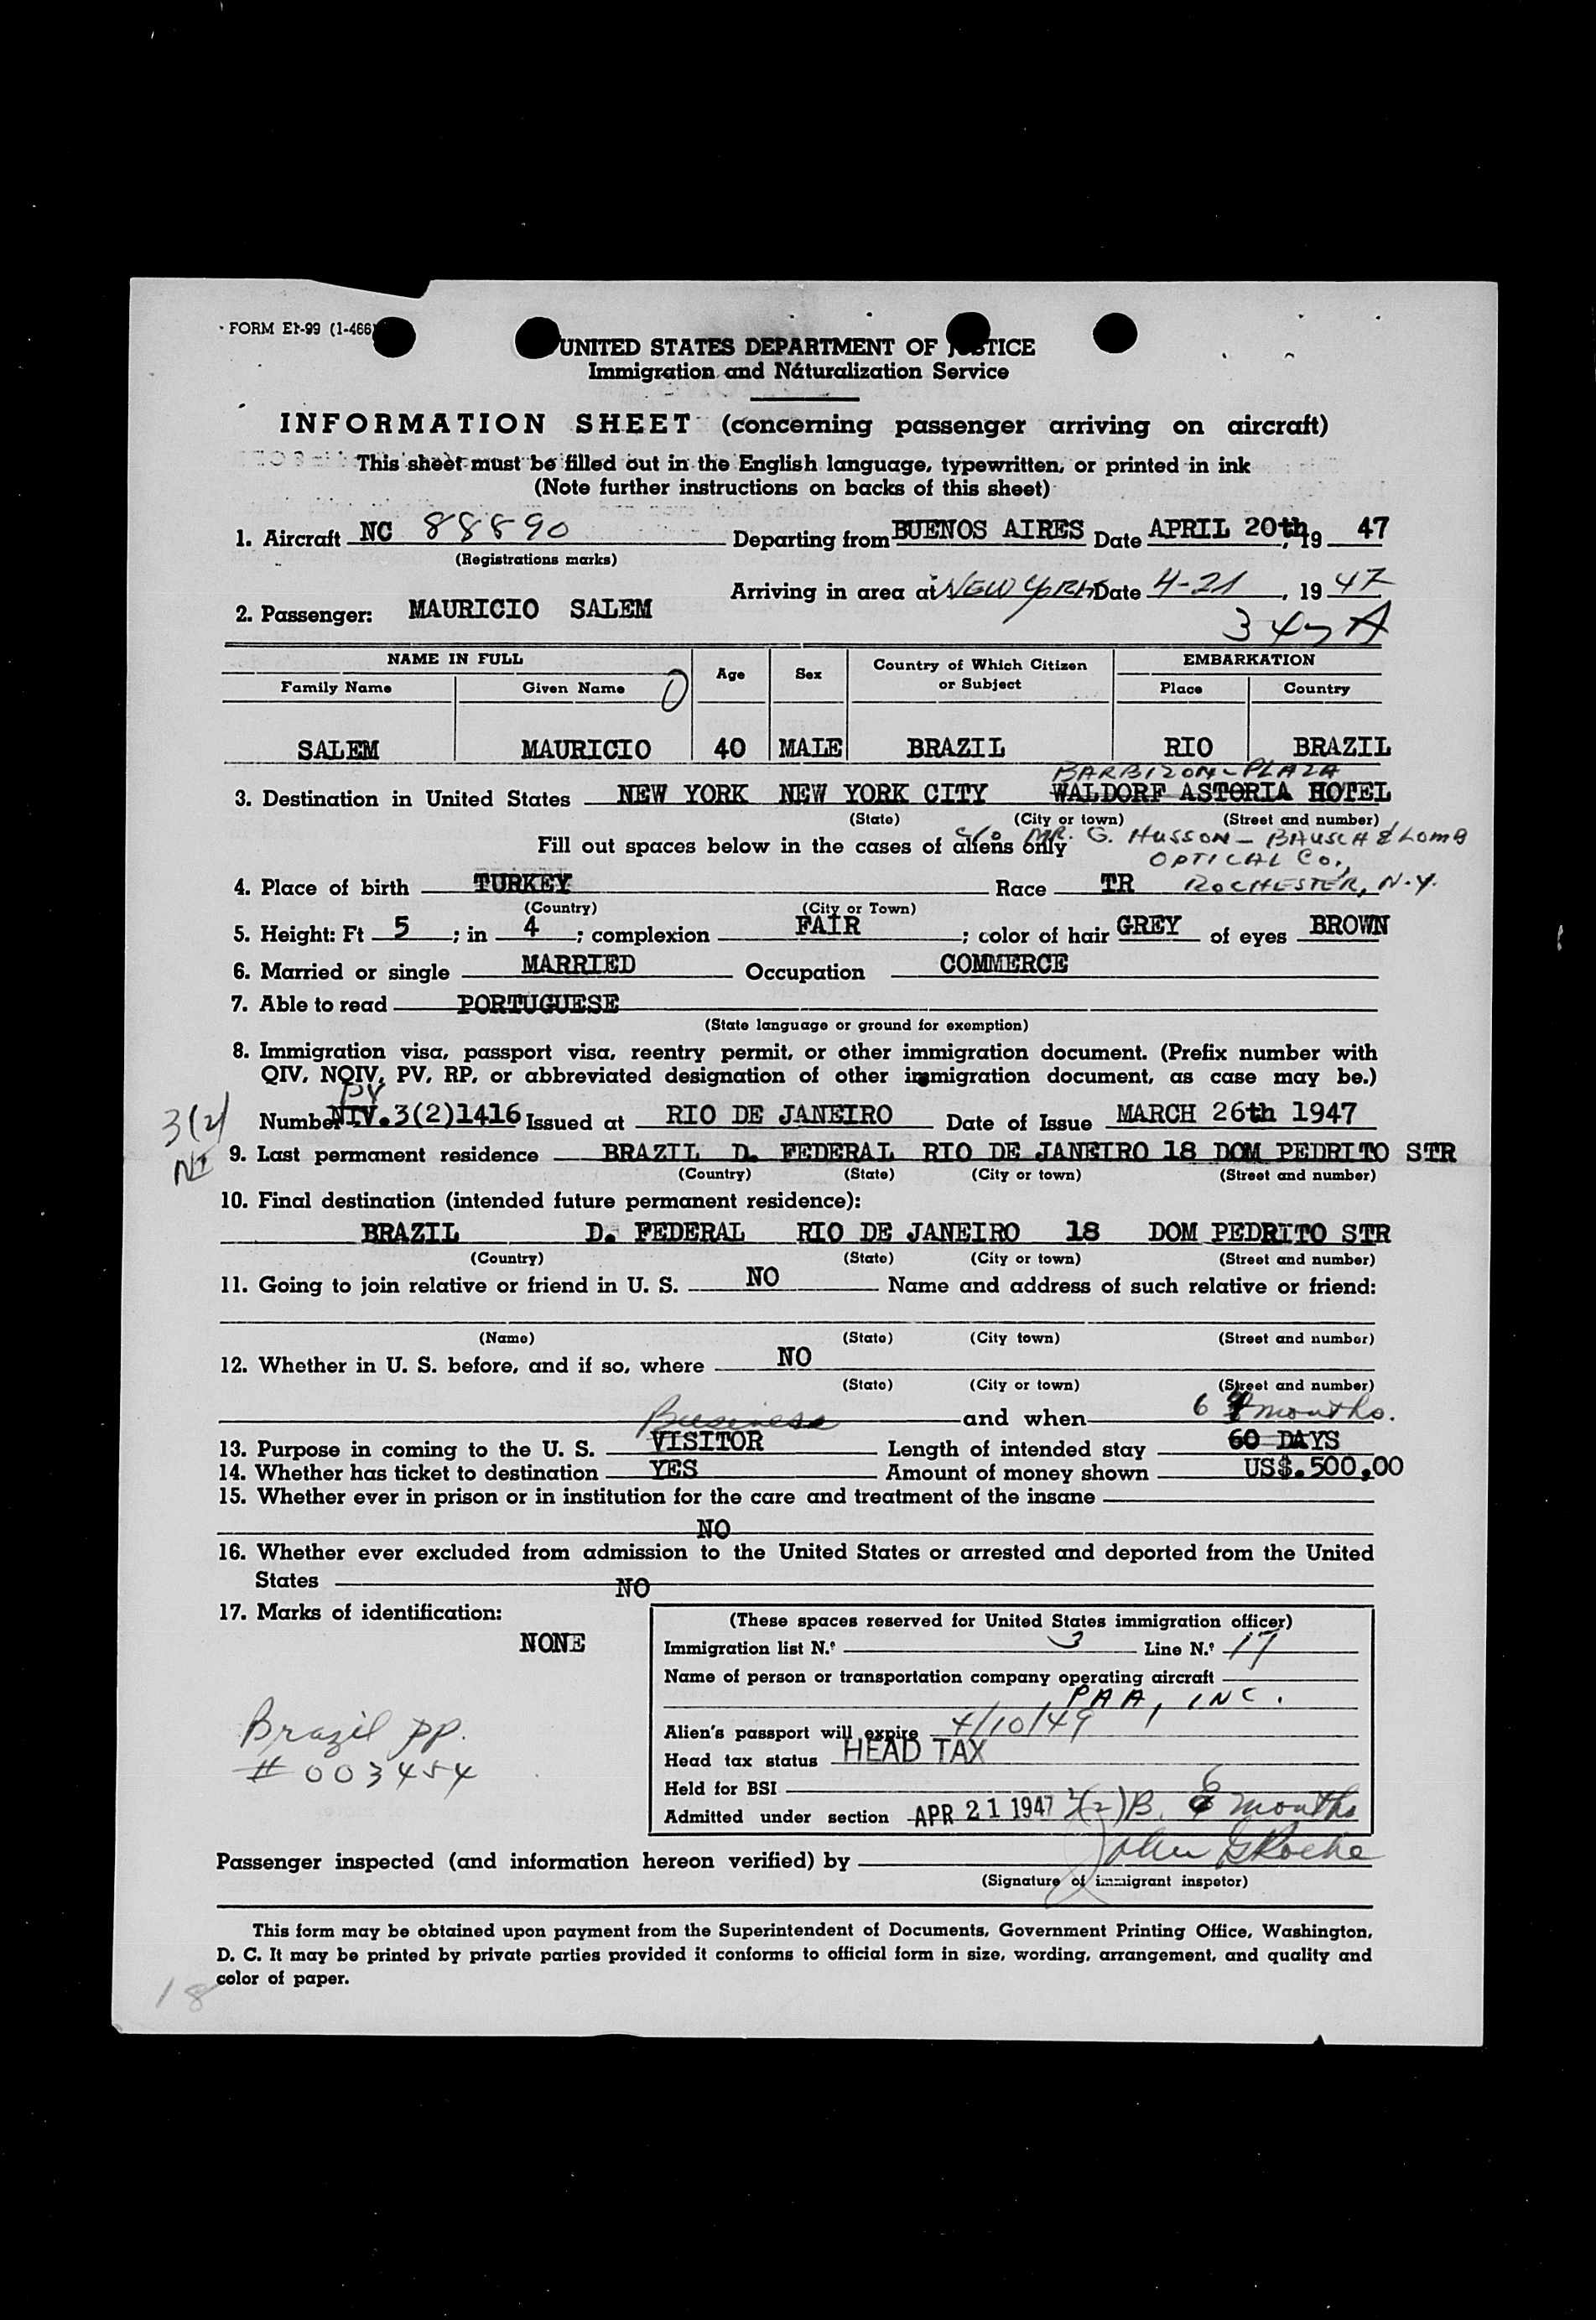 FORM EI-99 (1-466)
UNITED STATES DEPARTMENT OF JUSTICE
Immigration and Naturalization Service
INFORMATION SHEET (concerning passenger arriving on aircraft)
This sheet must be filled out in the English language, typewritten, or printed in ink
(Note further instructions on backs of this sheet)
1. Aircraft NC 88890 Departing from BUENOS AIRES Date APRIL 20th, 19 47
(Registrations marks)
Arriving in area at NEW YORK Date 4-21, 19 47
2. Passenger: MAURICIO SALEM
NAME IN FULL Age Sex Country of Which Citizen or Subject EMBARKATION
Family Name Given Name Place Country
SALEM MAURICIO 40 MALE BRAZIL RIO BRAZIL
BARBIZON-PLAZA
3. Destination in United States NEW YORK NEW YORK CITY WALDORF ASTORIA HOTEL
(State) (City or town) (Street and number)
c/o MR. G. HUSSON - BAUSCH & LOMB
Fill out spaces below in the cases of aliens only
OPTICAL CO.,
4. Place of birth TURKEY Race TR ROCHESTER, N.Y.
(Country) (City or Town)
5. Height: Ft 5 ; in 4 ; complexion FAIR ; color of hair GREY of eyes BROWN
6. Married or single MARRIED Occupation COMMERCE
7. Able to read PORTUGUESE
(State language or ground for exemption)
8. Immigration visa, passport visa, reentry permit, or other immigration document. (Prefix number with
QIV, NQIV, PV, RP, or abbreviated designation of other immigration document, as case may be.)
PV
3(2) Number NIV. 3(2)1416 Issued at RIO DE JANEIRO Date of Issue MARCH 26th 1947
NI 9. Last permanent residence BRAZIL D. FEDERAL RIO DE JANEIRO 18 DOM PEDRITO STR
(Country) (State) (City or town) (Street and number)
10. Final destination (intended future permanent residence):
BRAZIL D. FEDERAL RIO DE JANEIRO 18 DOM PEDRITO STR
(Country) (State) (City or town) (Street and number)
11. Going to join relative or friend in U. S. NO Name and address of such relative or friend:
(Name) (State) (City town) (Street and number)
12. Whether in U. S. before, and if so, where NO
(State) (City or town) (Street and number)
Business and when 6 months.
13. Purpose in coming to the U. S. VISITOR Length of intended stay 60 DAYS
14. Whether has ticket to destination YES Amount of money shown US$.500,00
15. Whether ever in prison or in institution for the care and treatment of the insane
NO
16. Whether ever excluded from admission to the United States or arrested and deported from the United
States NO
17. Marks of identification:
NONE
(These spaces reserved for United States immigration officer)
Immigration list N.º 3 Line N.º 17
Name of person or transportation company operating aircraft
PAA, INC.
Alien's passport will expire 4/10/49
Head tax status HEAD TAX
Held for BSI
Admitted under section APR 21 1947 3(2)B. 6 months
Brazil pp.
# 003454
Passenger inspected (and information hereon verified) by John G Roche
(Signature of immigrant inspetor)
This form may be obtained upon payment from the Superintendent of Documents, Government Printing Office, Washington,
D. C. It may be printed by private parties provided it conforms to official form in size, wording, arrangement, and quality and
color of paper.
18